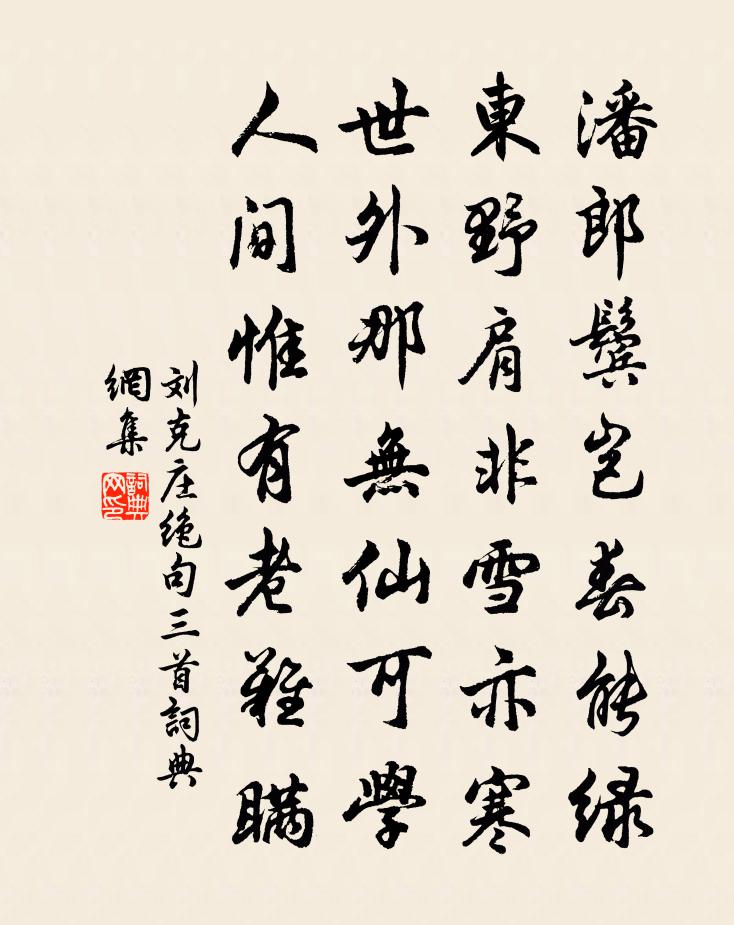 潘郎鬓岂春能緑
東野肩非雪亦寒
世外那無仙可學
人间惟有老難瞞
刘克庄绝句三首詞典
網集
詞典网印